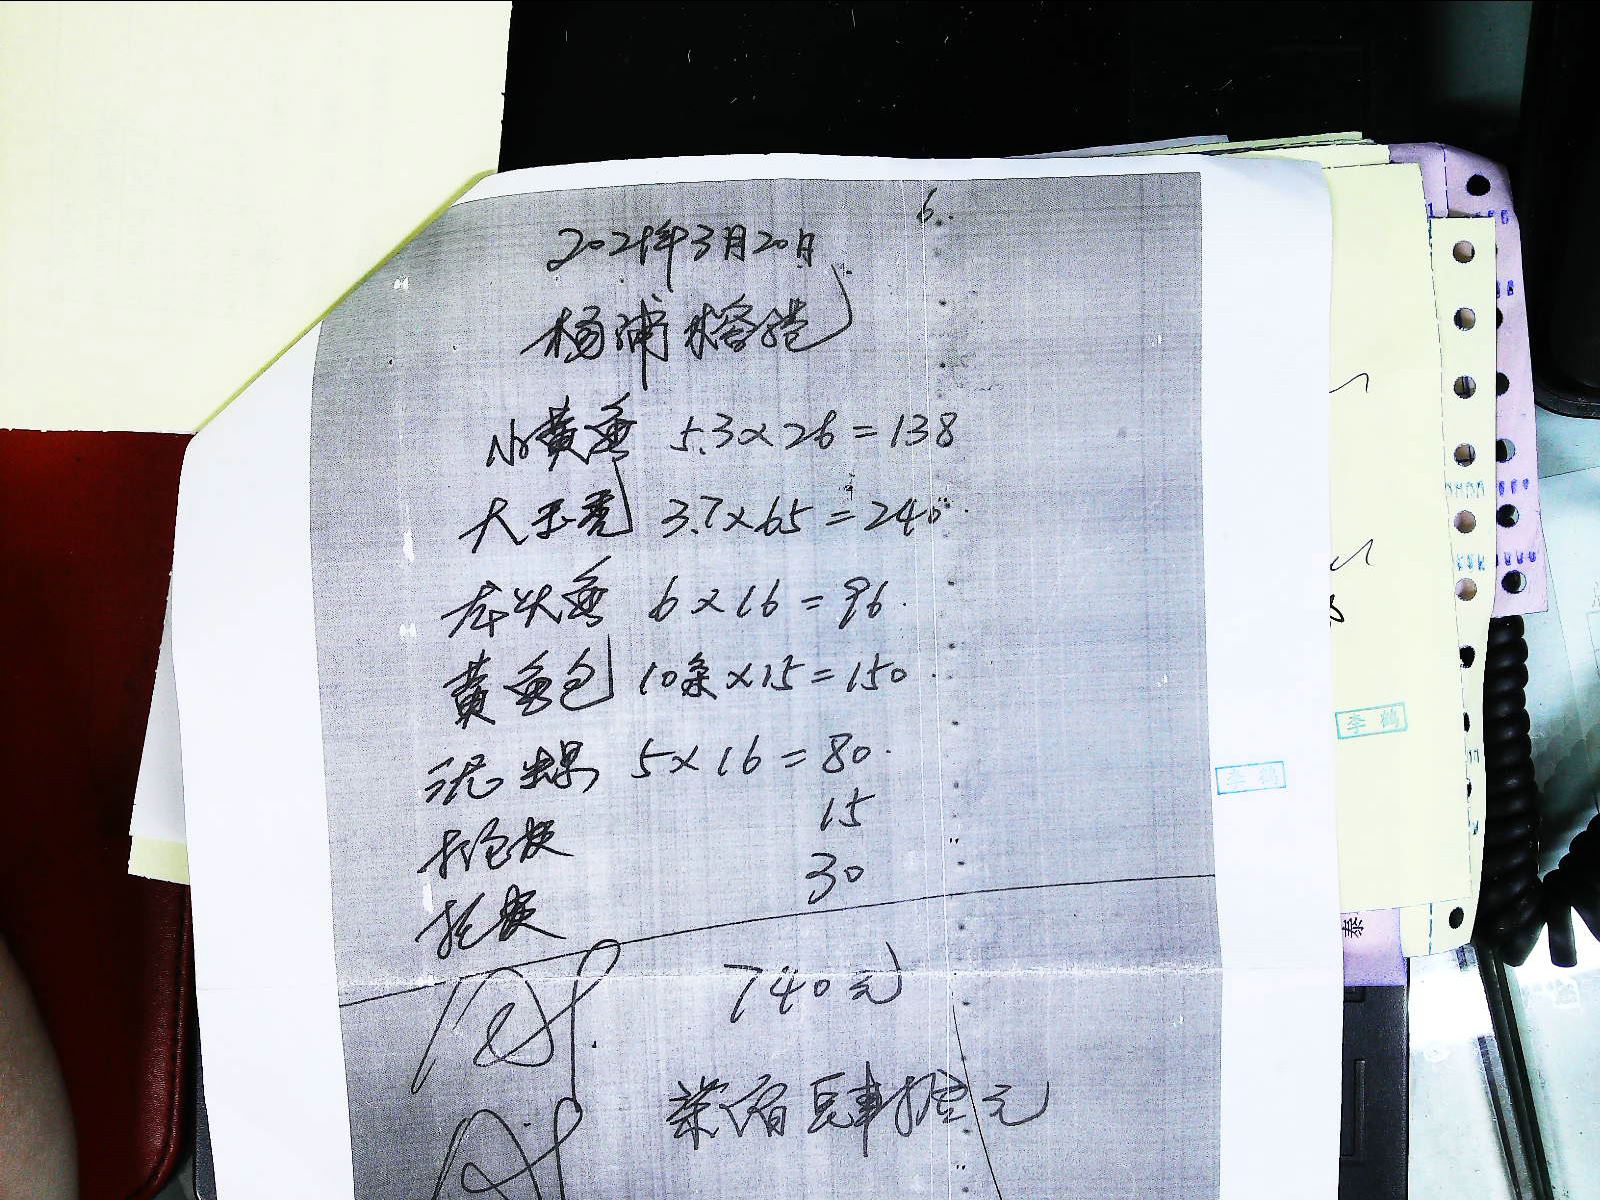 2021年3月20日
杨浦熔港
小黄鱼 5.3×26=138
大玉秃 3.7×65=240
龙头鱼 6×16=96.
黄鱼包 10条×15=150.
泥螺 5×16=80.
打包费 15
托费 30
740元
柒佰肆拾元
李鹤
李鹤
泰